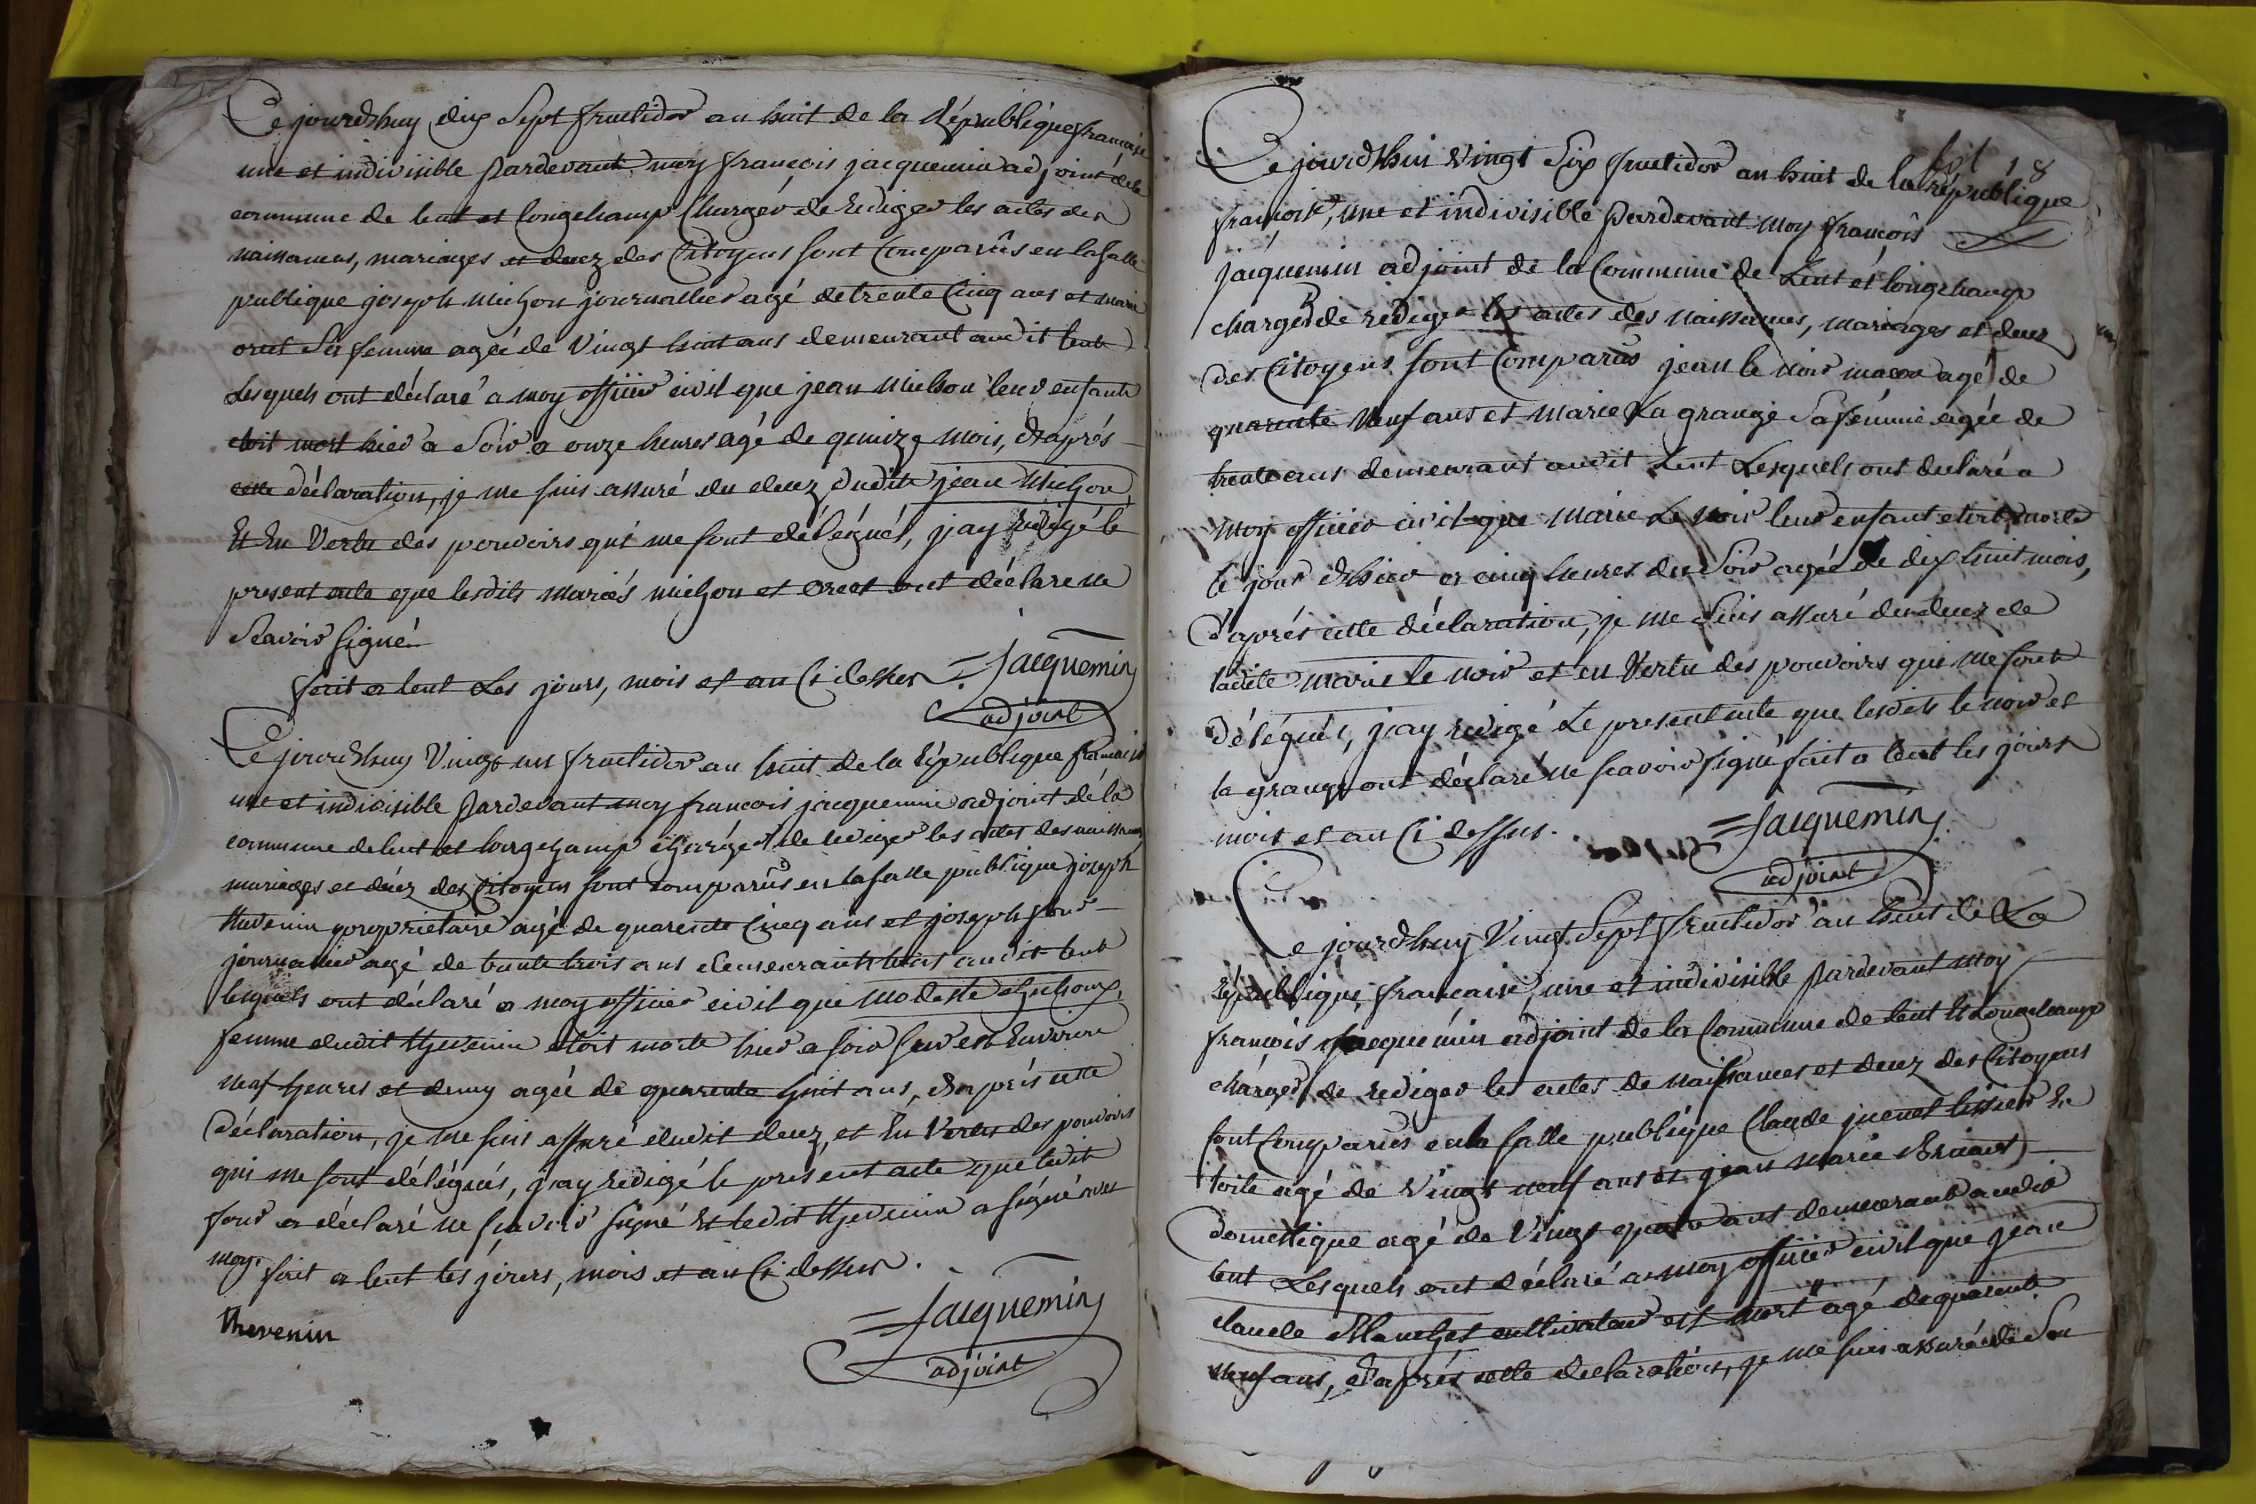 Ce jourd'huy dix Sept fructidor an huit de la République francaise
une et indivisible pardevant moy françois jacquemin adjoint de la
commune de lent et longchamp Chargéo de rediger les actes des
naissances, mariages et decez des Citoyens sont Comparûs en la salle
publique joseph michon journallier agé de trente Cinq ans et marie
oret sa femme agée de Vingt huit ans demeurant audit lent
Lesquels ont déclaré a moy officier civil que jean michon leur enfant
etoit mort hier a Soir a onze heures agé de quinze mois, d'aprés
cette déclaration, je me suis assuré du decez dudit jean Michon
Et En Vertu des pouvoirs qui me sont délégués, j'ay redigé le
present acte que lesdits mariés michon et oret ont déclaré ne
Scavoir signé
fait a lent Les jours, mois et an Ci dessus = Jacquemin
adjoint
Ce jourd'huy Vingt un fructidor an huit de la République francaise
une et indivisible pardevant moy françois jacquemin adjoint de la
commune de lent et longchamp chargé de rediger les actes des naissances
mariages et décez des Citoyens sont comparûs en la salle publique joseph
thevenin proprietaire agé de quarente Cinq ans et joseph four
journalier agé de trente trois ans demeurants tous audit lent
lesquels ont déclaré a moy officier civil que modeste
femme dudit thevenin étoit morte hier a soir sur environ
neuf heures et demy agée de quarente huit ans, d'aprés cette
déclaration, je me suis assuré dudit decez, et En Vertu des pouvoirs
qui me sont délégués, j'ay redigé le present acte que ledit
four a déclaré ne scavoir signé et ledit thevenin a signé avec
moy. fait a lent les jours, mois et an Ci dessus.
thevenin
= Jacquemin
adjoint
fol 18
Ce jourd'hui Vingt Six fructidor an huit de la république
françoise, une et indivisible pardevant moy françois
jacquemin adjoint de la Commune de Lent et longchamp
chargé de rediger les actes des naissances, mariages et decez
des Citoyens sont Comparûs jean le noir macon agé de
quarente neuf ans et marie La grange Sa femme agée de
trente ans demeurant audit Lent Lesquels ont declaré a
moy officier civil que marie Le noir leur enfant etoit morte
le jour d'hier a cinq heures du Soir agée de dix huit mois,
d'aprés cette déclaration, je me suis assuré du decez de
ladite marie le noir et en Vertu des pouvoirs qui me sont
délégués, j'ay redigé Le present acte que lesdits le noir et
la grange ont déclaré ne scavoir signé fait a lent les jours
mois et an Ci dessus. = Jacquemin
adjoint
Ce jourd'huy Vingt Sept fructidor an huit de La
République, francaise, une et indivisible pardevant moy
françois jacquemin adjoint de la Commune de lent et Longchamp
chargé de rediger les actes de naissances et decez des Citoyens
sont comparûs en la salle publique Claude juenet tissier En
toile agé de Vingt neuf ans et jean marie
domestique agé de Vingt quatre ans demeurant audit
lent Lesquels ont déclaré a moy officier civil que jean
claude Blanchet cultivateur est mort agé de quarente
neuf ans, d'aprés cette declaration, je me suis assuré de Son